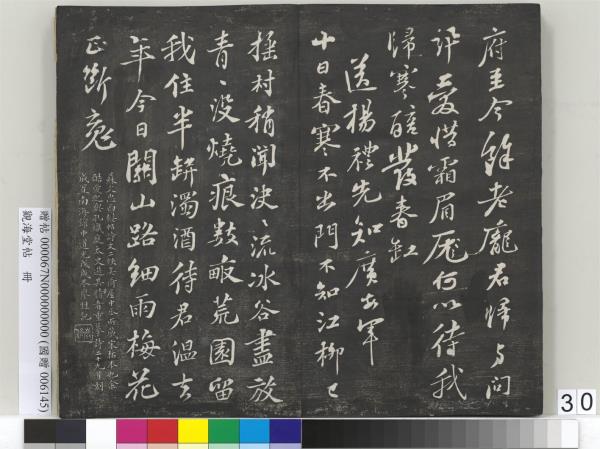 府主今餘老龐君歸与問
訊愛惜霜眉厖何以待我
歸寒醅發春缸
送楊禮先知廣安軍
十日春寒不出門不知江柳已
搖村稍聞決〻流冰谷盡放
青〻沒燒痕數畝荒園留
我住半缾濁酒待君溫去
年今日關山路細雨梅花
正斷魂
贈帖 000067N000000000 (國贈 006145)
觀海堂帖 冊
30